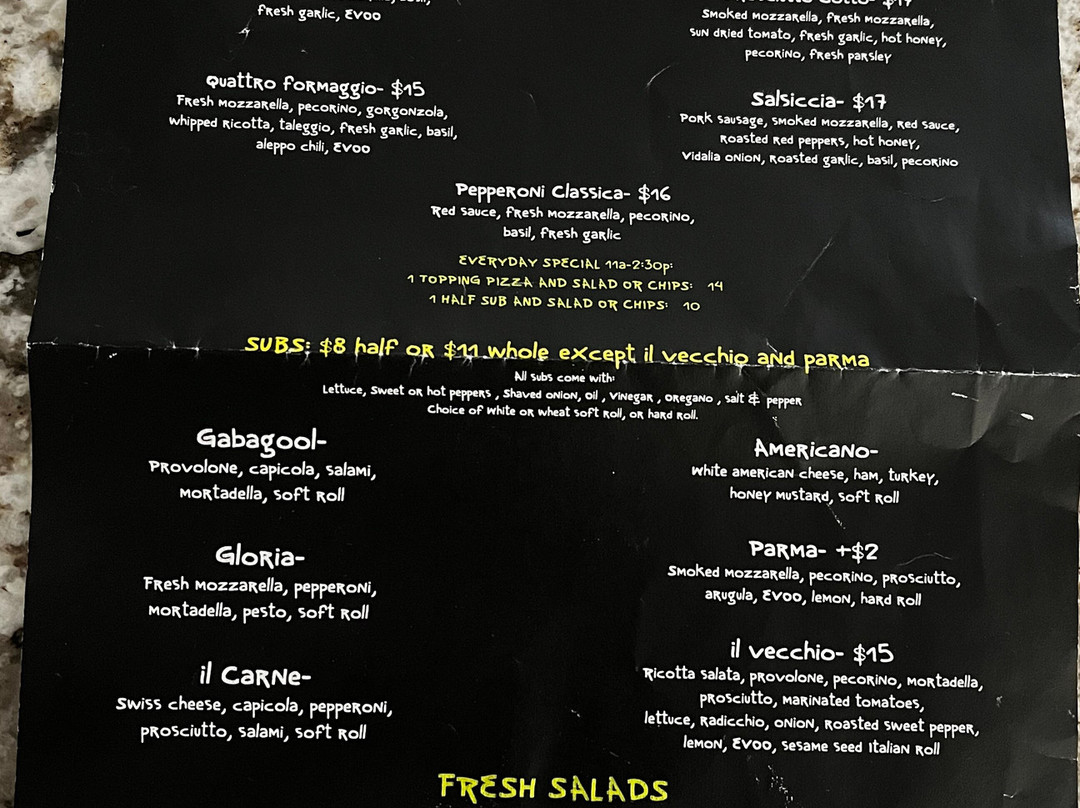 fresh garlic, EVOO
$17
Smoked mozzarella, fresh mozzarella,
sun dried tomato, fresh garlic, hot honey,
pecorino, fresh parsley
Quattro formaggio- $15
Fresh mozzarella, pecorino, gorgonzola,
whipped ricotta, taleggio, fresh garlic, basil,
aleppo chili, EVOO
Salsiccia- $17
Pork sausage, smoked mozzarella, red sauce,
roasted red peppers, hot honey,
Vidalia onion, roasted garlic, basil, pecorino
Pepperoni Classica- $16
Red sauce, fresh mozzarella, pecorino,
basil, fresh garlic
EVERYDAY SPECIAL 11a-2:30p:
1 TOPPING PIZZA AND SALAD OR CHIPS: 14
1 HALF SUB AND SALAD OR CHIPS: 10
SUBS: $8 half or $11 whole except il vecchio and parma
All subs come with:
Lettuce, Sweet or hot peppers , Shaved onion, Oil , Vinegar , oregano , salt & pepper
Choice of white or wheat soft roll, or hard roll.
Gabagool-
Provolone, capicola, salami,
mortadella, soft roll
Americano-
White american cheese, ham, turkey,
honey mustard, soft roll
Gloria-
Fresh mozzarella, pepperoni,
mortadella, pesto, soft roll
Parma- +$2
Smoked mozzarella, pecorino, prosciutto,
arugula, EVOO, lemon, hard roll
il Carne-
Swiss cheese, capicola, pepperoni,
prosciutto, salami, soft roll
il vecchio- $15
Ricotta salata, provolone, pecorino, mortadella,
prosciutto, marinated tomatoes,
lettuce, radicchio, onion, roasted sweet pepper,
lemon, EVOO, sesame seed Italian roll
FRESH SALADS